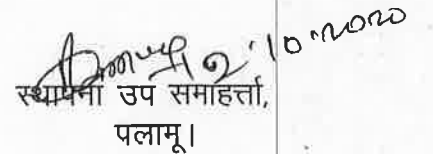 2.10.2020
स्थापना उप समाहर्त्ता,
पलामू।